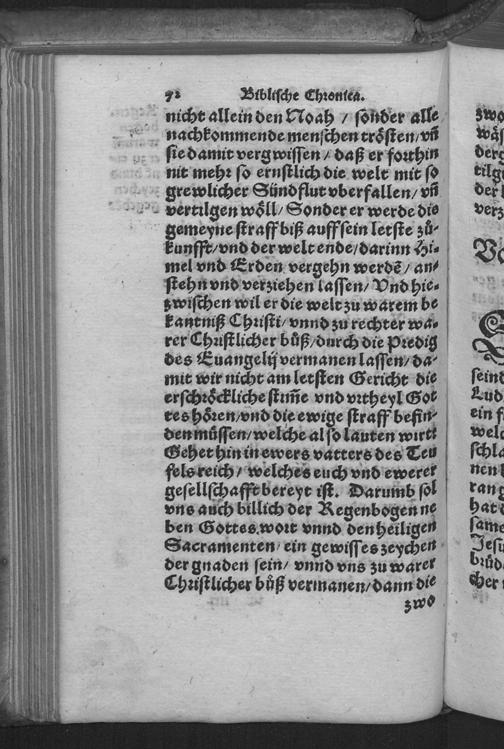 92 Biblische Chronica.
nicht allein den Noah / sonder alle
nachkommende menschen trösten/ vñ
sie damit vergwissen/ daß er forthin
nit mehr so ernstlich die welt mit so
grewlicher Sündflut vberfallen/ vñ
vertilgen wöll/ Sonder er werde die
gemeyne straff biß auff sein letste zů-
kunfft/ vnd der welt ende/ darinn Hi-
mel vnd Erden vergehn werdē/ an-
stehn vnd verziehen lassen/ Vnd hie-
zwischen wil er die welt zu warem be
kantniß Christi/ vnnd zu rechter wa-
rer Christlicher bůß/ durch die Predig
des Euangelij vermanen lassen/ da-
mit wir nicht am letsten Gericht die
erschröckliche stim̃e vnd vrtheyl Got
tes hören/ vnd die ewige straff befin-
den müssen/ welche also lauten wirt:
Gehet hin in ewers vatters des Teu
fels reich/ welches euch vnd ewerer
gesellschafft bereyt ist. Darumb sol
vns auch billich der Regenbogen ne
ben Gottes wort vnnd den heiligen
Sacramenten/ ein gewisses zeychen
der gnaden sein/ vnnd vns zu warer
Christlicher bůß vermanen/ dann die
zwo
zwo
wäs
derc
tilg
der
verz
Vo
seind
Lud
ein f
welc
schla
nen
ran g
hat d
same
Jesu
brüd
cher